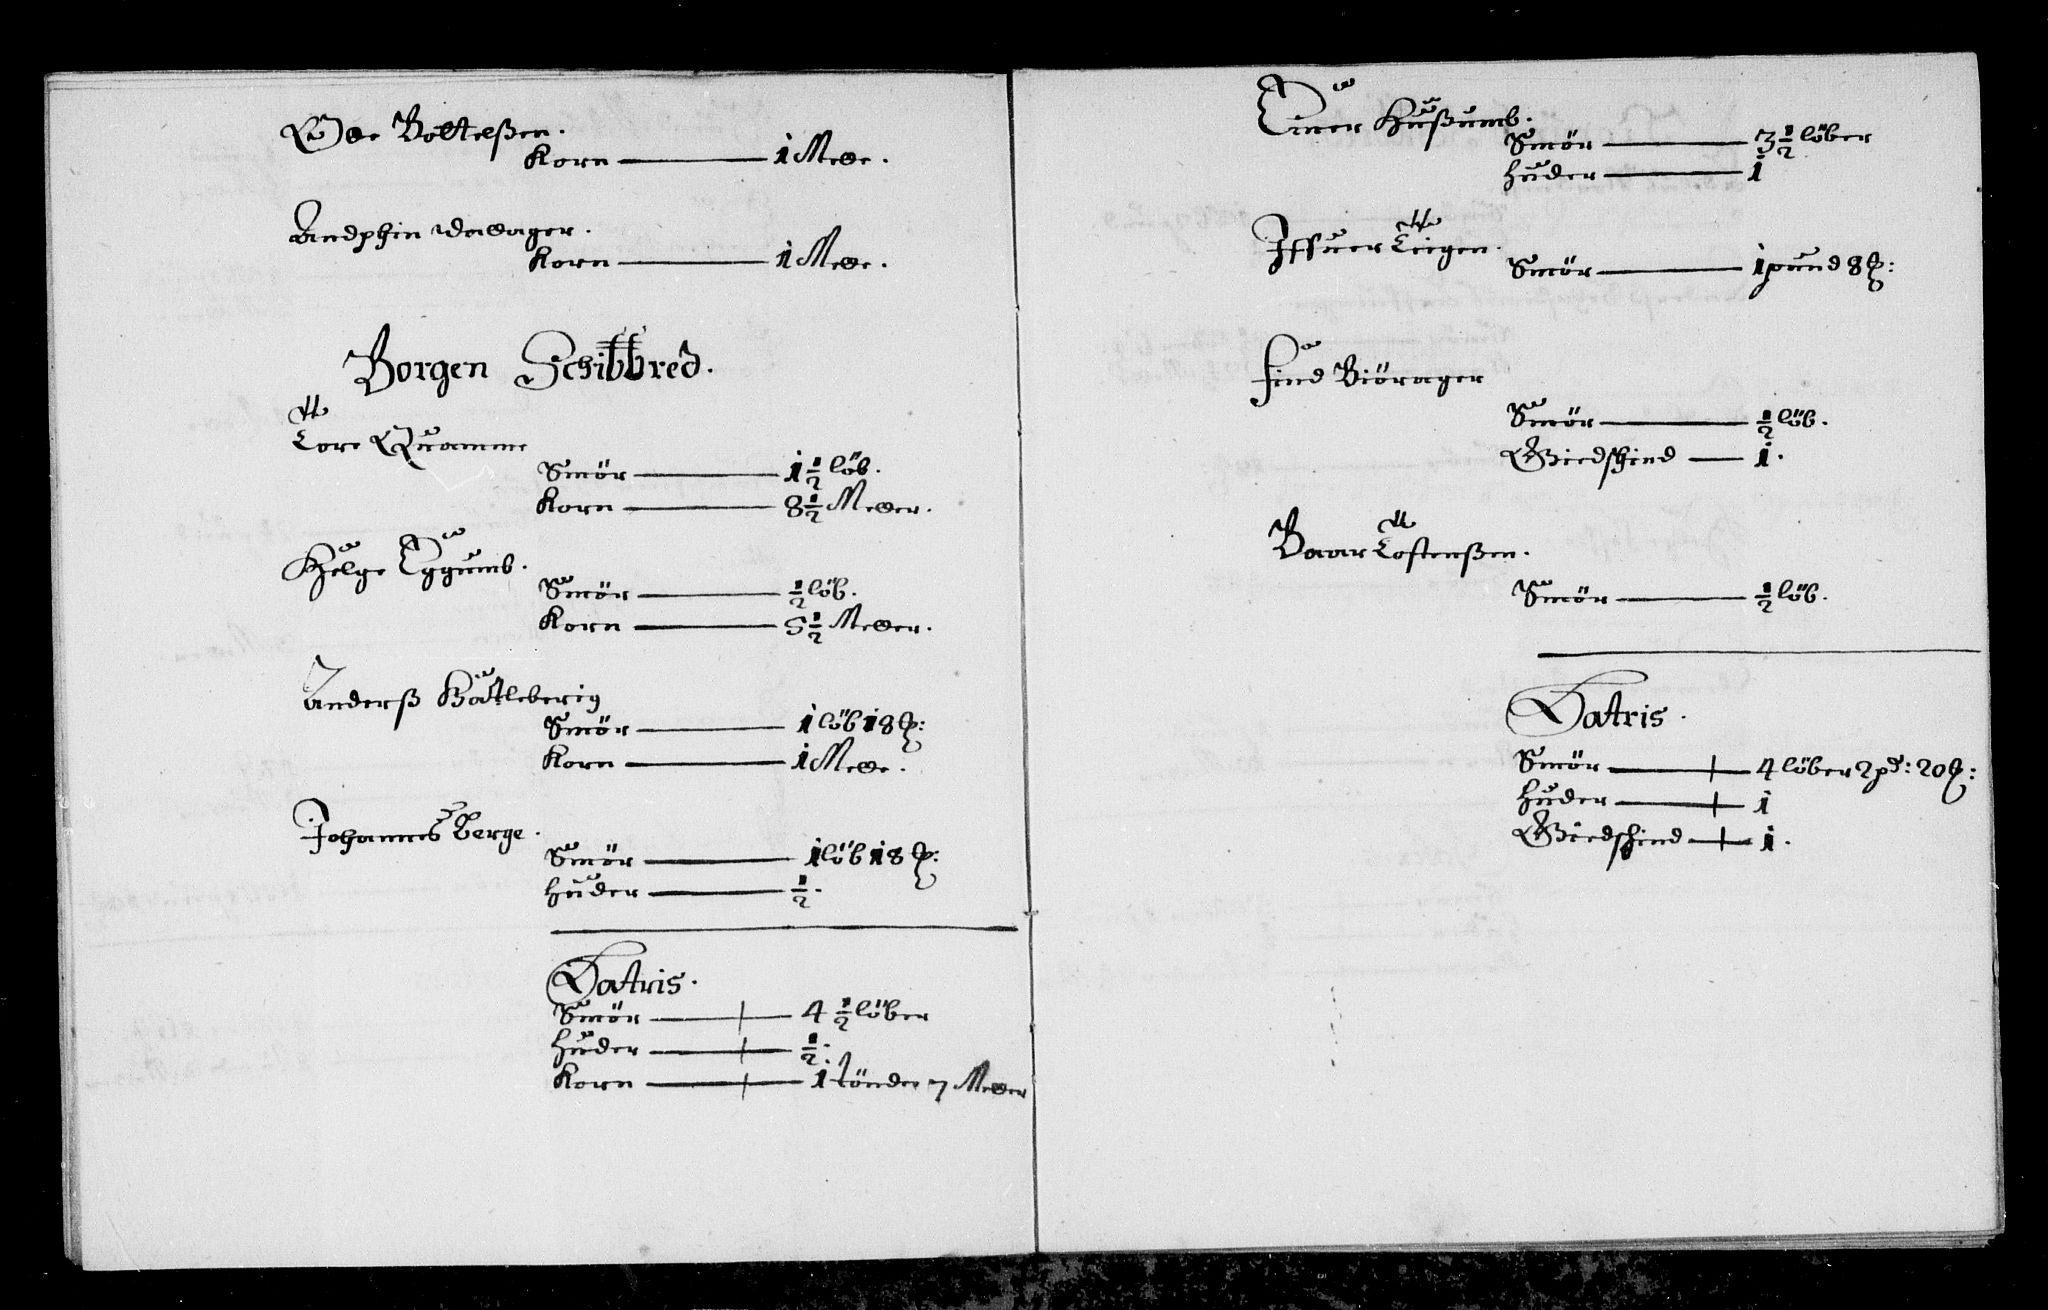 Ode Bottelßen.
Korn — 1 Mele.
Andphin Wallager.
Korn — 1 Mele.
Borgen Schibbred.
Tore Quamme
Smör — 1½ löb.
Korn — 8½ Meler.
Helge Eggumb.
Smör — ½ löb.
Korn — 5½ Meler.
Anderß Hatleberig
Smör — 1 löb 18 ℔:
Korn — 1 Mele.
Johannes Berge.
Smör — 1 löb 18 ℔:
Huder — ½.
Latris.
Smör — 4 ½ löber
Huder — ½:
Korn — 1 tönder 7 Meler
Einer Hußumb.
Smör — 3½ löber
Huder — 1
Iffuer Teigen.
Smör — 1 pund 8 ℔:
Find Biörager
Smör — ½ löb.
Giedschind — 1.
Baar Tostenßen.
Smör — ½ löb.
Latris.
Smör — 4 löber 2 pd: 20 ℔:
Huder — 1
Giedschind — 1.